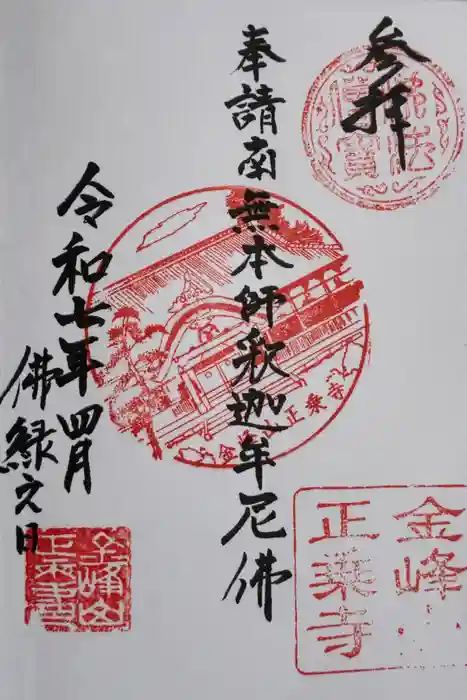 参拝
奉請南無本師釈迦牟尼佛
令和七年四月
佛縁之日
佛法
僧寶
金峰山正乗寺
金峰山
正乗寺
金峰
正乗寺